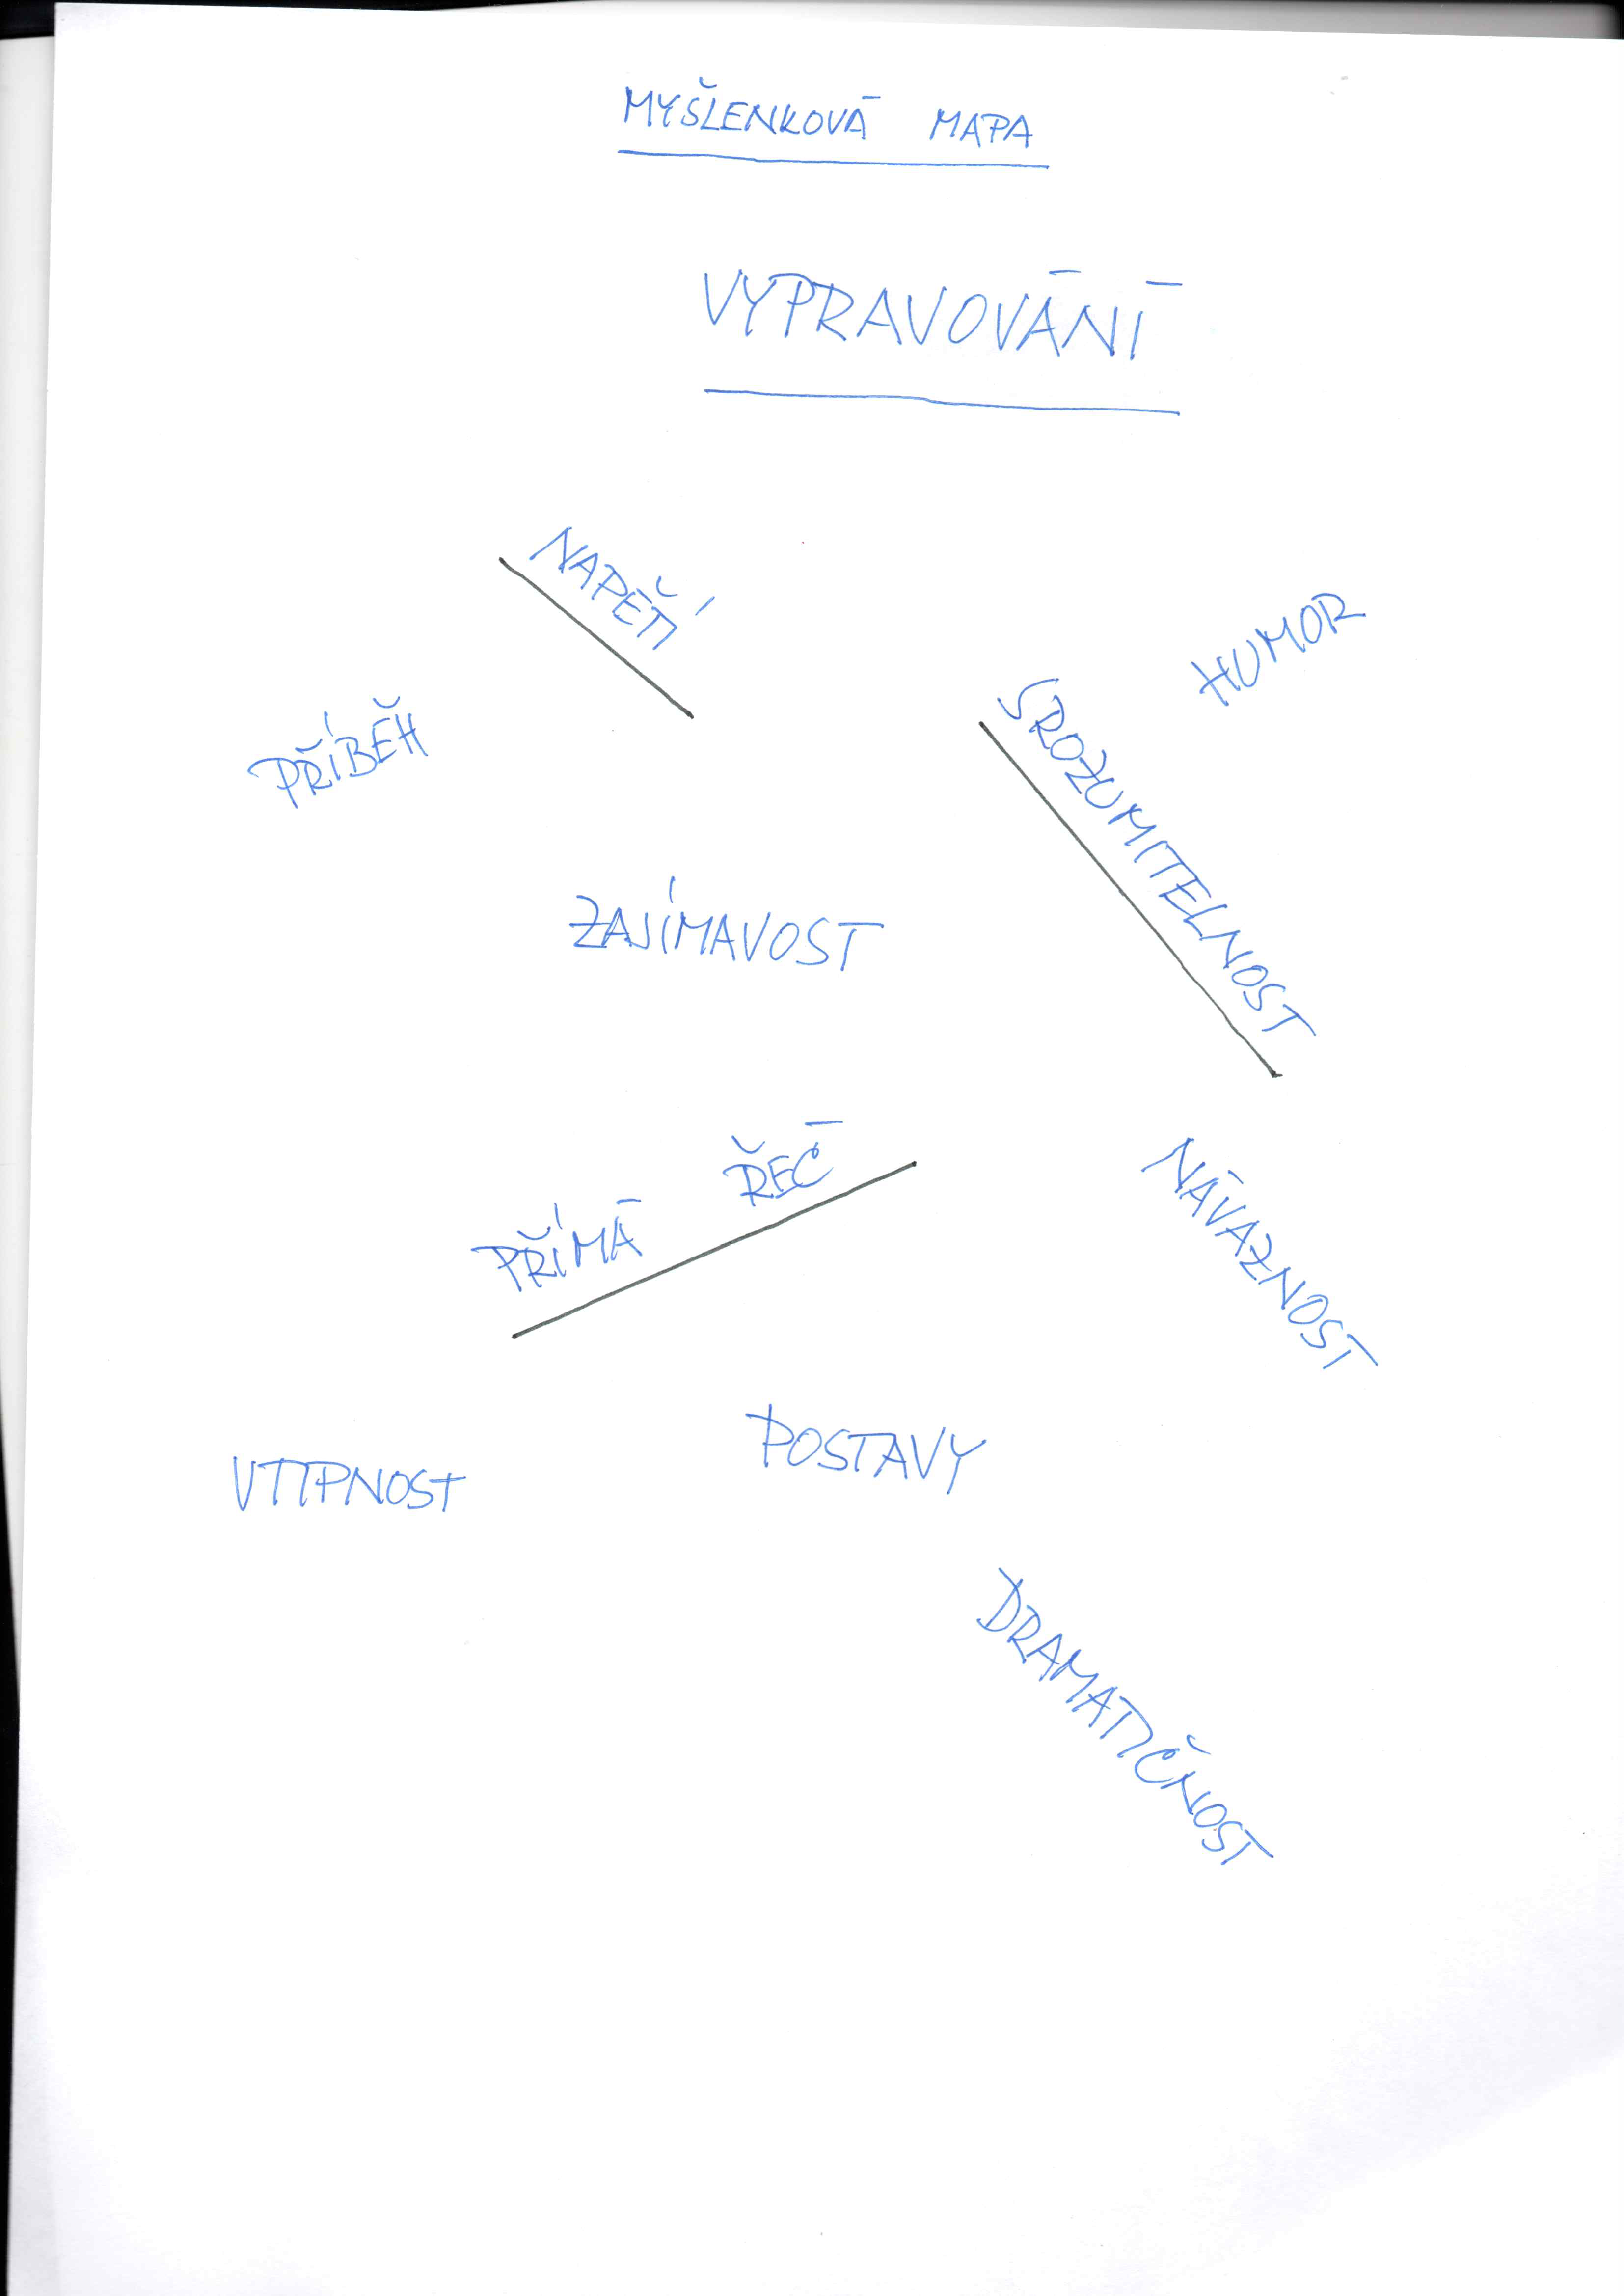 MYŠLENKOVÁ MAPA
VYPRAVOVÁNÍ
NAPĚTÍ
HUMOR
PŘÍBĚH
SROZUMITELNOST
ZAJÍMAVOST
PŘÍMÁ ŘEČ
NÁVAZNOST
POSTAVY
VTIPNOST
DRAMATIČNOST